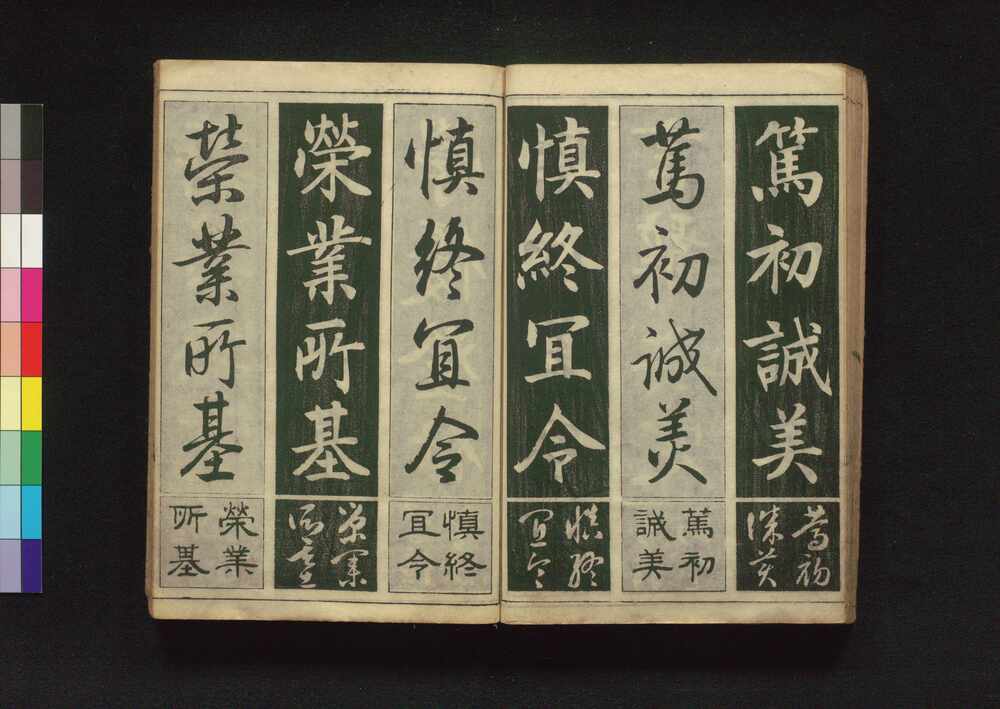 篤初誠美
篤初
誠美
篤初誠美
篤初
誠美
慎終冝令
慎終
冝令
慎終冝令
慎終
冝令
榮業所基
榮業
所基
榮業所基
榮業
所基